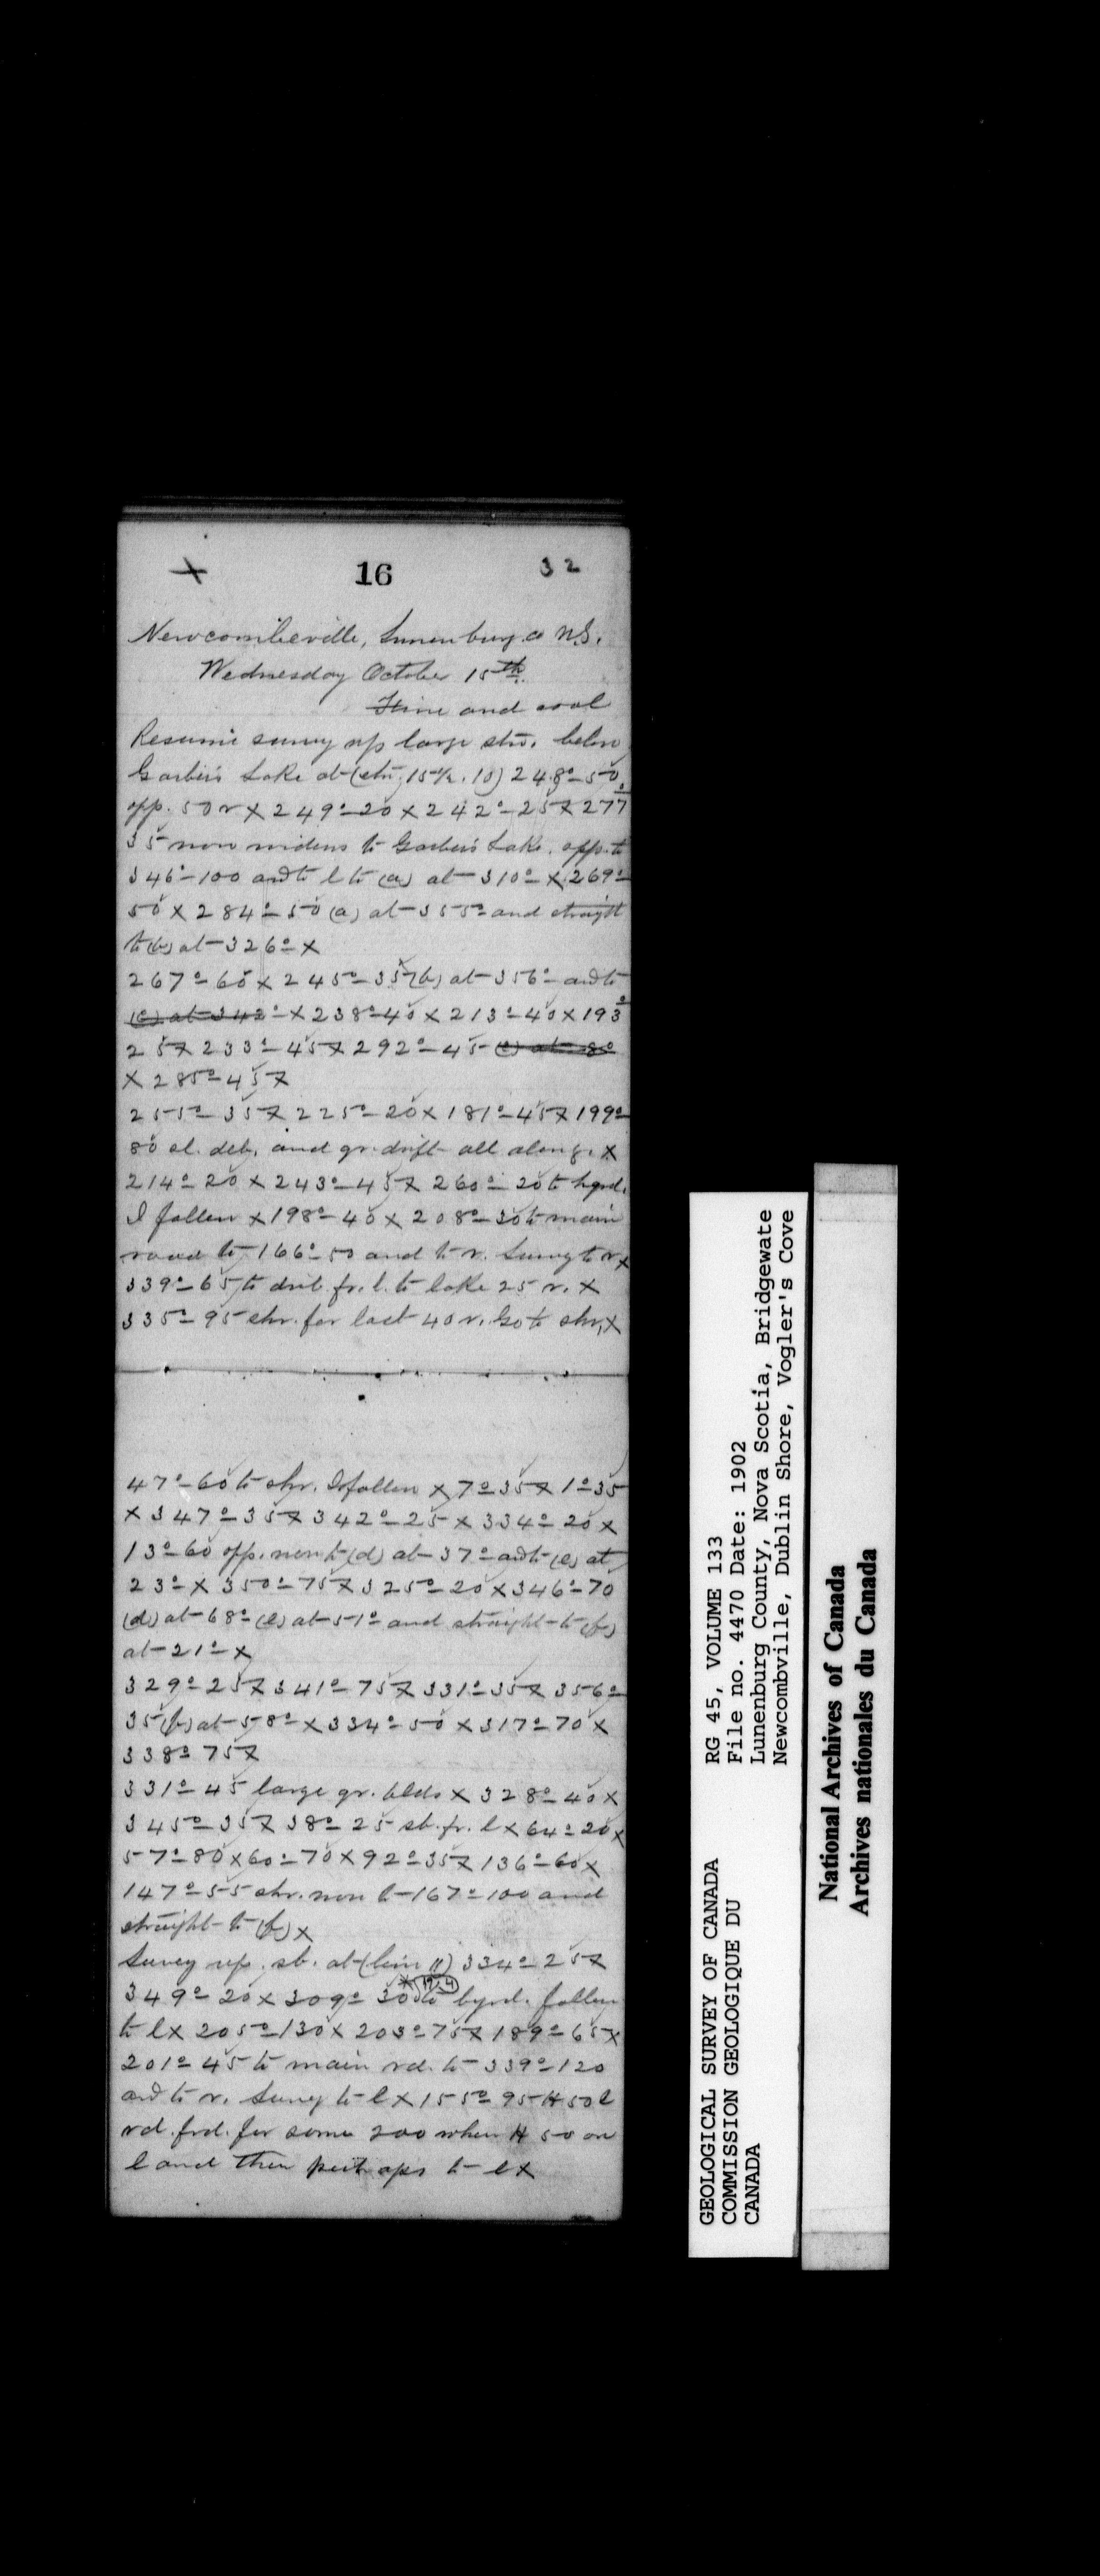 X 16 32
Newcombeville, Lunenburg Co N.S.
Wednesday October 15th
Fine and cool
Resume survey up large str. below
Garber's Lake at (str. 15½.10) 248°-50
opp. 50 r X 249°-20 X 242°-25 X 277°
35 now widens to Garber's Lake. opp. to
346°-100 and to l to (a) at 310° X 269°
50 X 284°-50 (a) at 355° and straight
to (b) at 326° X
267°-60 X 245°-35 (b) at 356° and to
(c) at 342° X 238°-40 X 213°-40 X 193°
25 X 233°-45 X 292°-45 (c) at 8°
X 285°-45 X
255°-35 X 225°-20 X 181°-45 X 199°
80 sl. deb. and gr. drift all along. X
214°-20 X 243°-45 X 260°-20 to
I follow X 198°-40 X 208°-30 to main
road to 166°-50 and to r. Survey to r X
339°-65 to fr. l. to lake 25 r. X
335°-95 shr. for last 40 r. Go to shr. X
47°-60 to shr. I follow X 7°-35 X 1°-35
X 347°-35 X 342°-25 X 334°-20 X
13°-60 opp. now to (d) at 37° and to (e) at
23° X 350°-75 X 325°-20 X 346°-70
(d) at 68° (e) at 51° and straight to (f)
at 21° X
329°-25 X 341°-75 X 331°-35 X 356°
35 (f) at 58° X 334°-50 X 317°-70 X
338°-75 X
331°-45 large gr. blds X 328°-40 X
345°-35 X 38°-25 sb. fr. l X 64°-20 X
57°-80 X 60°-70 X 92°-35 X 136°-60 X
147°-55 shr. now to 167°-100 and
straight to (f) X
Survey up sb. at (line 11) 334°-25 X
349°-20 X 309°-30 to byrd. follow
to l X 205°-130 X 203°-75 X 189°-65 X
201°-45 to main rd. to 339°-120
and to r. Survey to l X 155°-95 H 50 l
rd. frd. for some 200 when H 50 on
l and then perhaps to l X
GEOLOGICAL SURVEY OF CANADA
COMMISSION GEOLOGIQUE DU
CANADA
RG 45, VOLUME 133
File no. 4470 Date: 1902
Lunenburg County, Nova Scotia, Bridgewate
Newcombville, Dublin Shore, Vogler's Cove
National Archives of Canada
Archives nationales du Canada